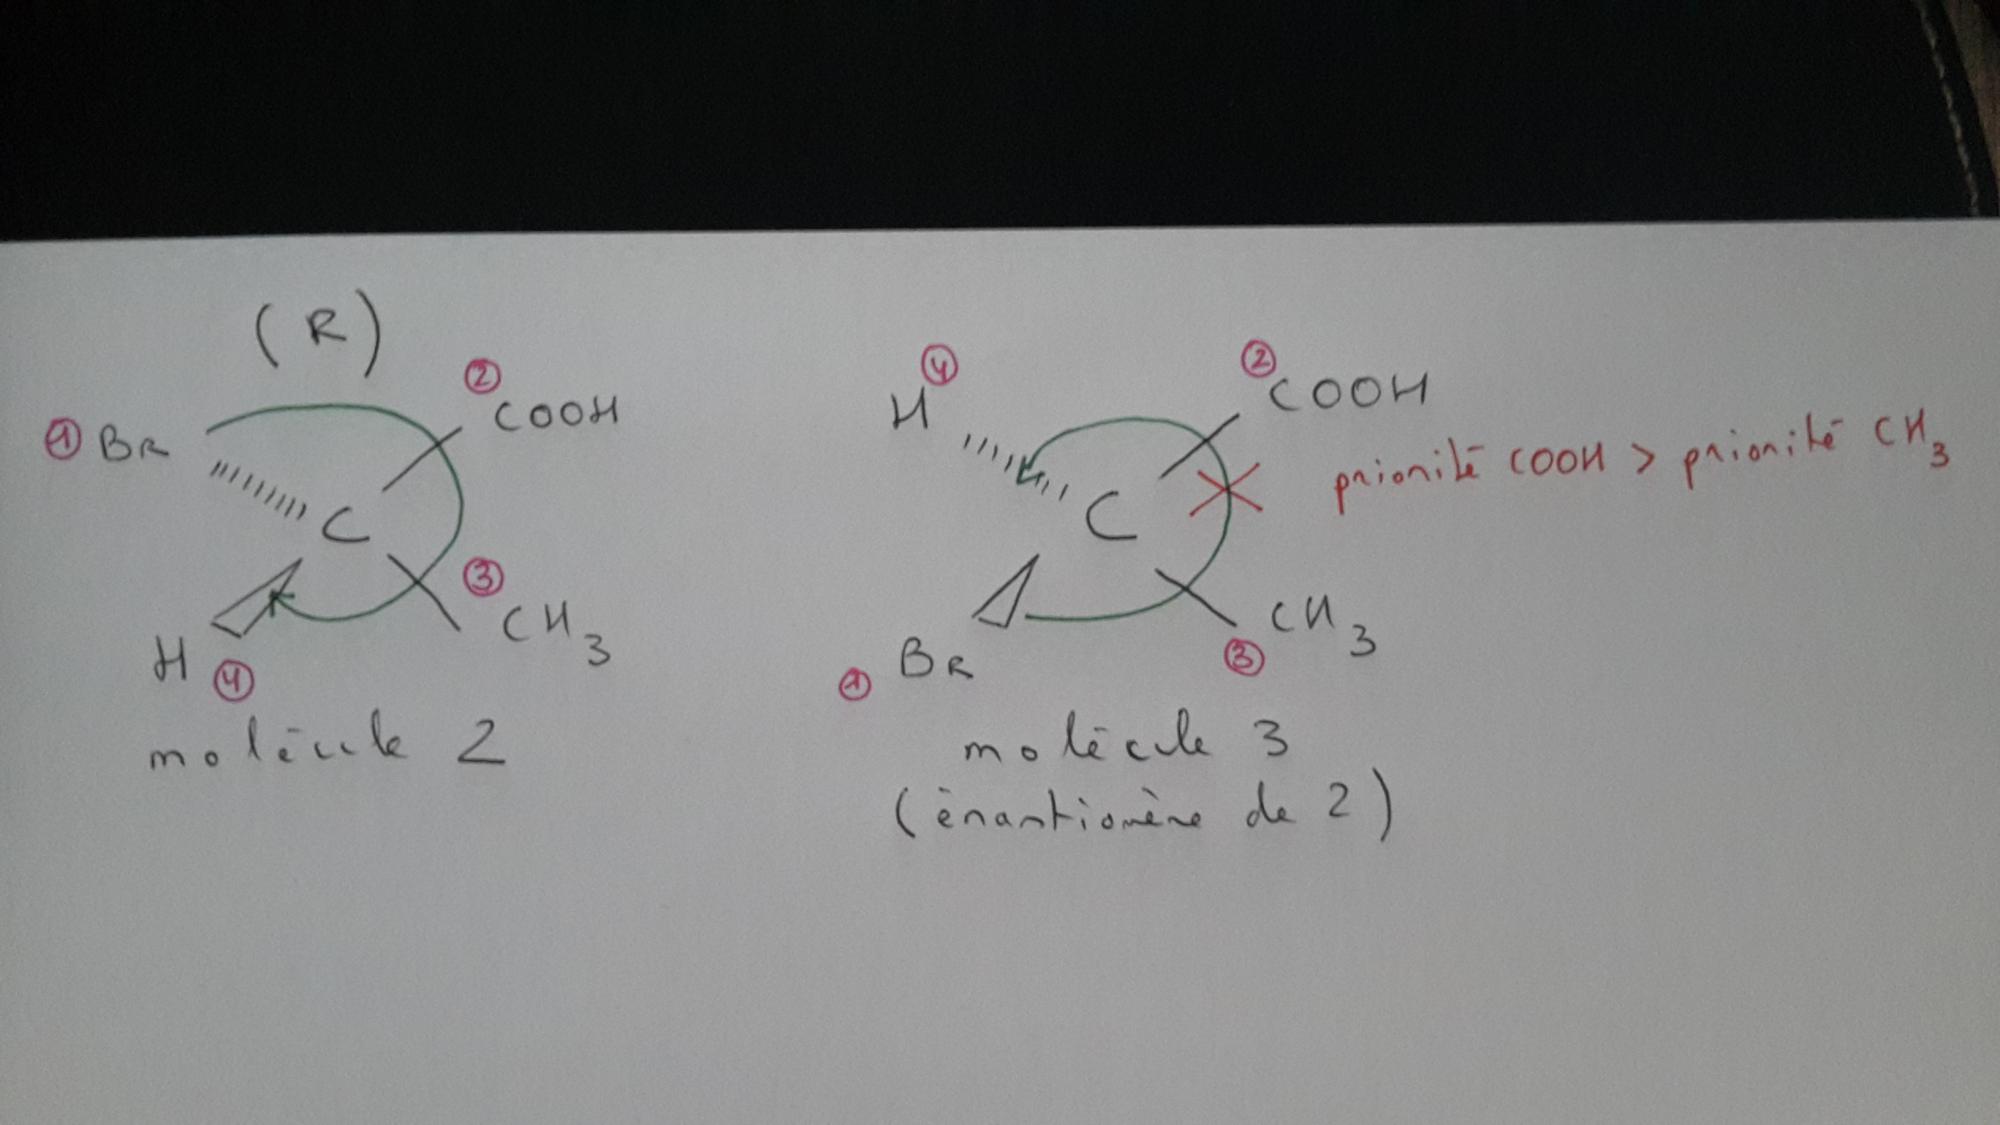 (R)
② COOH
① Br
C
③ CH3
H ④
molécule 2
④ H
② COOH
C
① Br
CH3 ③
priorité COOH > priorité CH3
molécule 3
(énantiomère de 2)